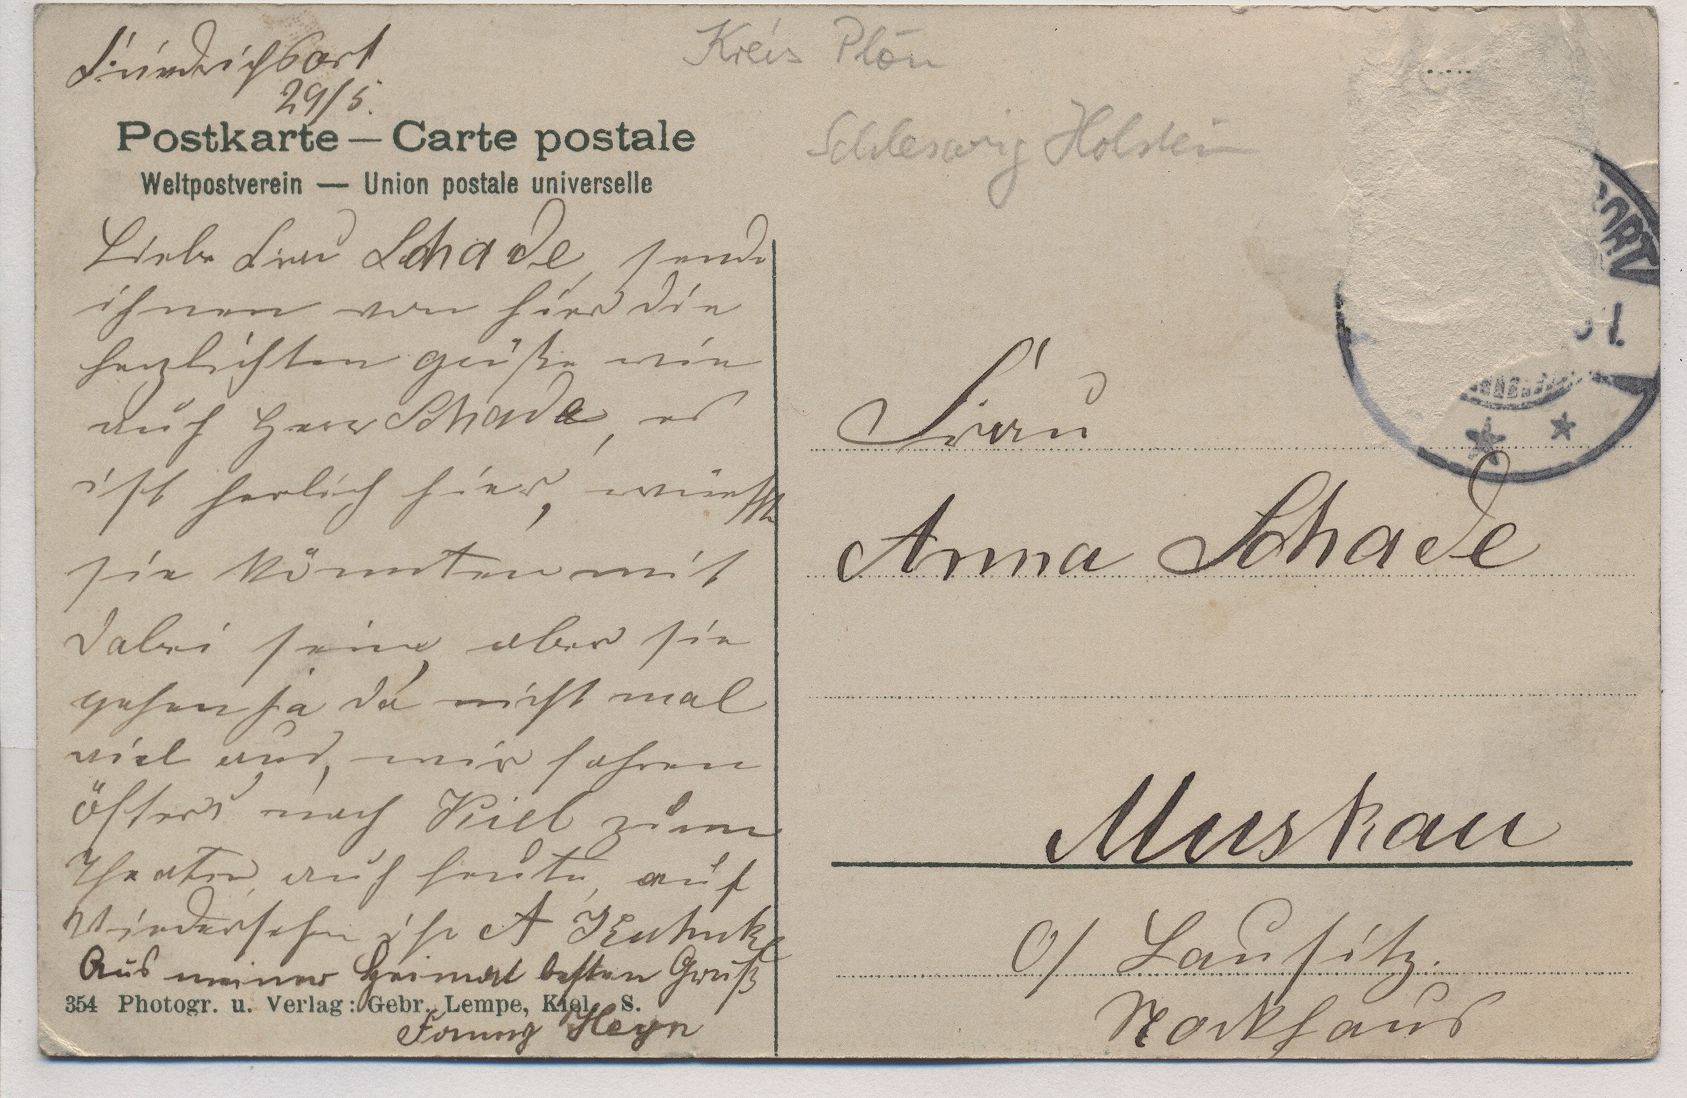 Friedrichsort
29/5.
Kreis Plön
Schleswig Holstein
Postkarte — Carte postale
Weltpostverein — Union postale universelle
Liebe Frau Schade, sende
ihnen von hier die
herzlichten Grüße wie
auch Herr Schade, es
ist herlich hier, wünschte
sie könnten mit
dabei sein, aber sie
gehen ja da nicht mal
viel aus, wir fahren
öfters nach Kiel zum
Theater, auch heute, auf
Wiedersehn ihr A
Aus meiner Heimat besten Gruß
354 Photogr. u. Verlag: Gebr. Lempe, Kiel. S.
Heyn
Frau
Anna Schade
Muskau
O/ Lausitz.
ORT